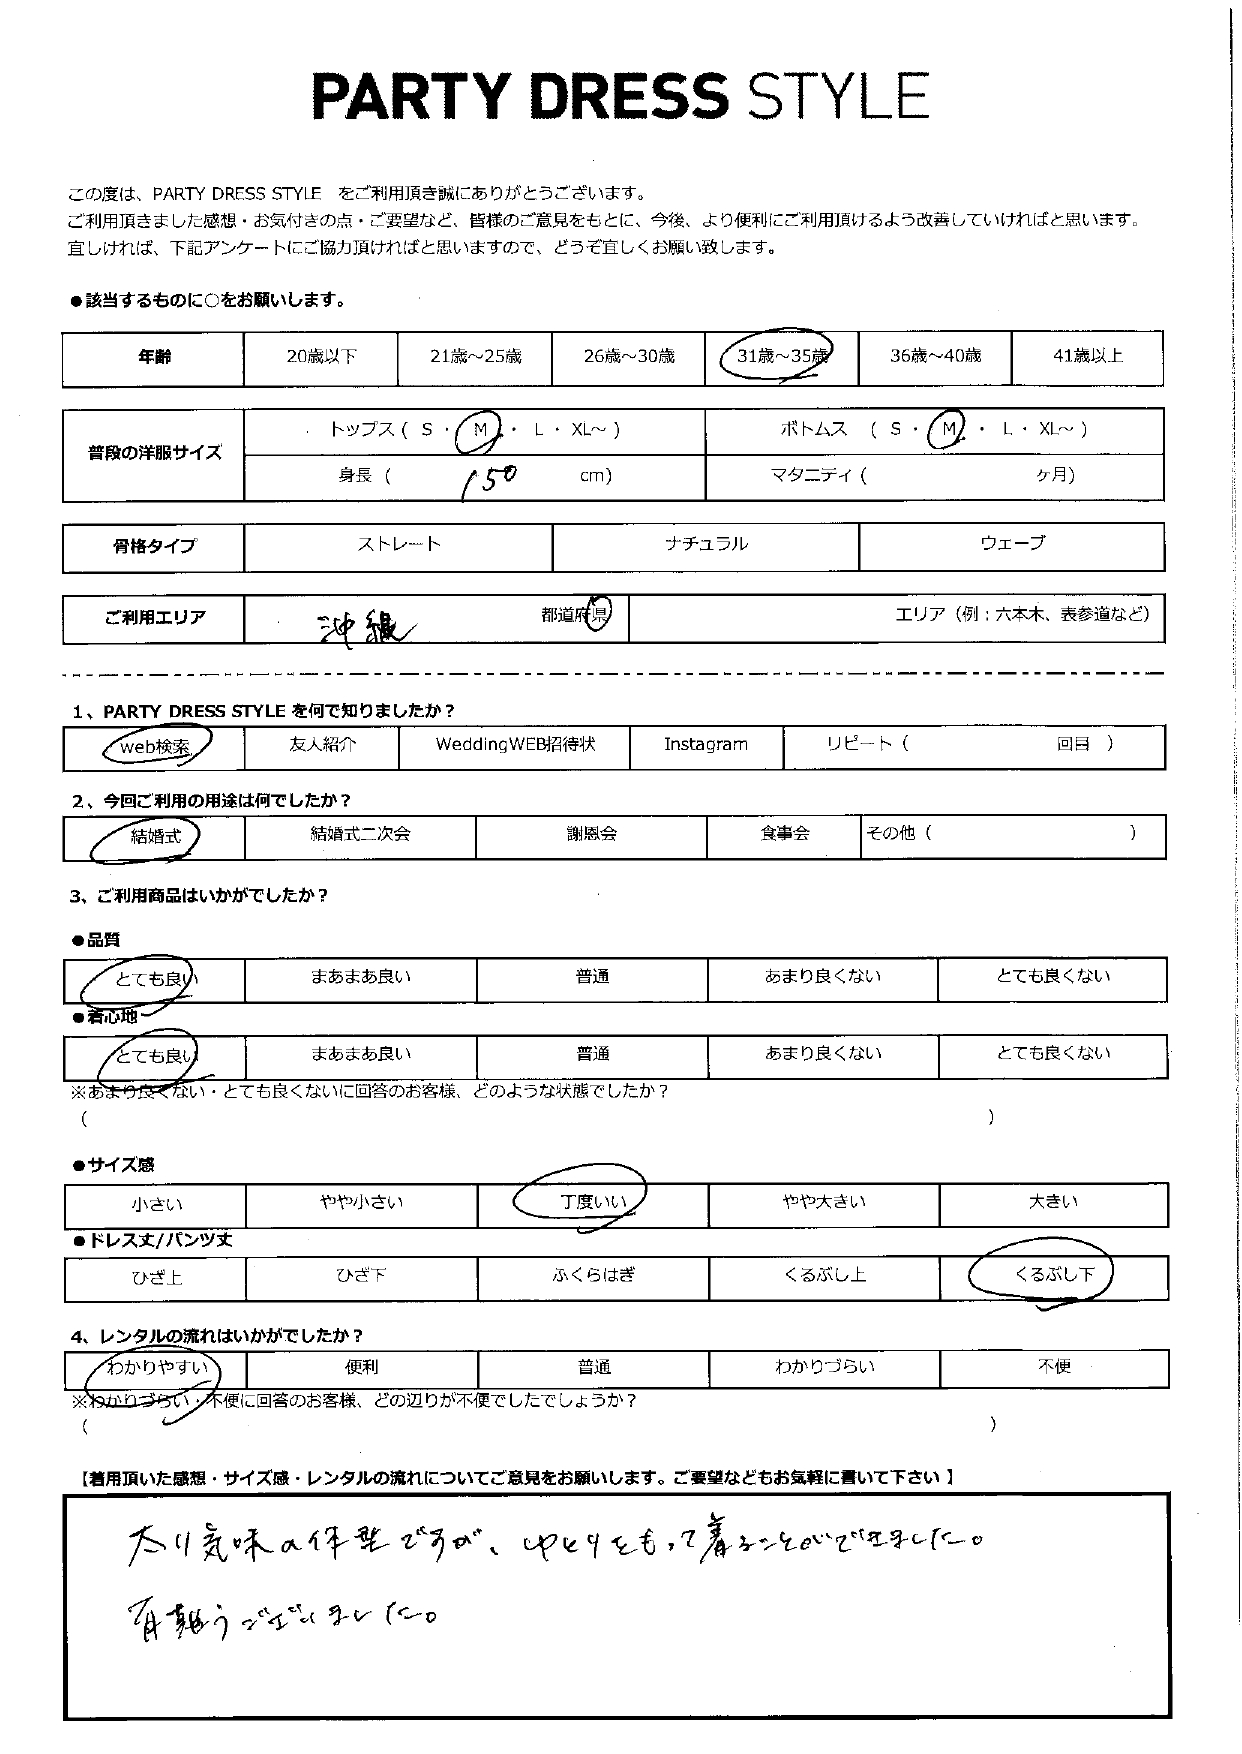 PARTY DRESS STYLE
この度は、PARTY DRESS STYLE をご利用頂き誠にありがとうございます。
ご利用頂きました感想・お気付きの点・ご要望など、皆様のご意見をもとに、今後、より便利にご利用頂けるよう改善していければと思います。
宜しければ、下記アンケートにご協力頂ければと思いますので、どうぞ宜しくお願い致します。
●該当するものに○をお願いします。
年齢 20歳以下 21歳～25歳 26歳～30歳 31歳～35歳 36歳～40歳 41歳以上
普段の洋服サイズ トップス ( S ・ M ・ L ・ XL～ ) ボトムス ( S ・ M ・ L ・ XL～ )
身長 ( 150 cm) マタニティ ( ヶ月)
骨格タイプ ストレート ナチュラル ウェーブ
ご利用エリア 沖縄 都道府県 エリア (例：六本木、表参道など)
1、PARTY DRESS STYLE を何で知りましたか？
web検索 友人紹介 WeddingWEB招待状 Instagram リピート ( 回目 )
2、今回ご利用の用途は何でしたか？
結婚式 結婚式二次会 謝恩会 食事会 その他 ( )
3、ご利用商品はいかがでしたか？
●品質
とても良い まあまあ良い 普通 あまり良くない とても良くない
●着心地
とても良い まあまあ良い 普通 あまり良くない とても良くない
※あまり良くない・とても良くないに回答のお客様、どのような状態でしたか？
( )
●サイズ感
小さい やや小さい 丁度いい やや大きい 大きい
●ドレス丈/パンツ丈
ひざ上 ひざ下 ふくらはぎ くるぶし上 くるぶし下
4、レンタルの流れはいかがでしたか？
わかりやすい 便利 普通 わかりづらい 不便
※わかりづらい・不便に回答のお客様、どの辺りが不便でしたでしょうか？
( )
【着用頂いた感想・サイズ感・レンタルの流れについてご意見をお願いします。ご要望などもお気軽に書いて下さい】
太り気味の体型ですが、ゆとりをもって着ることができました。
有難うございました。